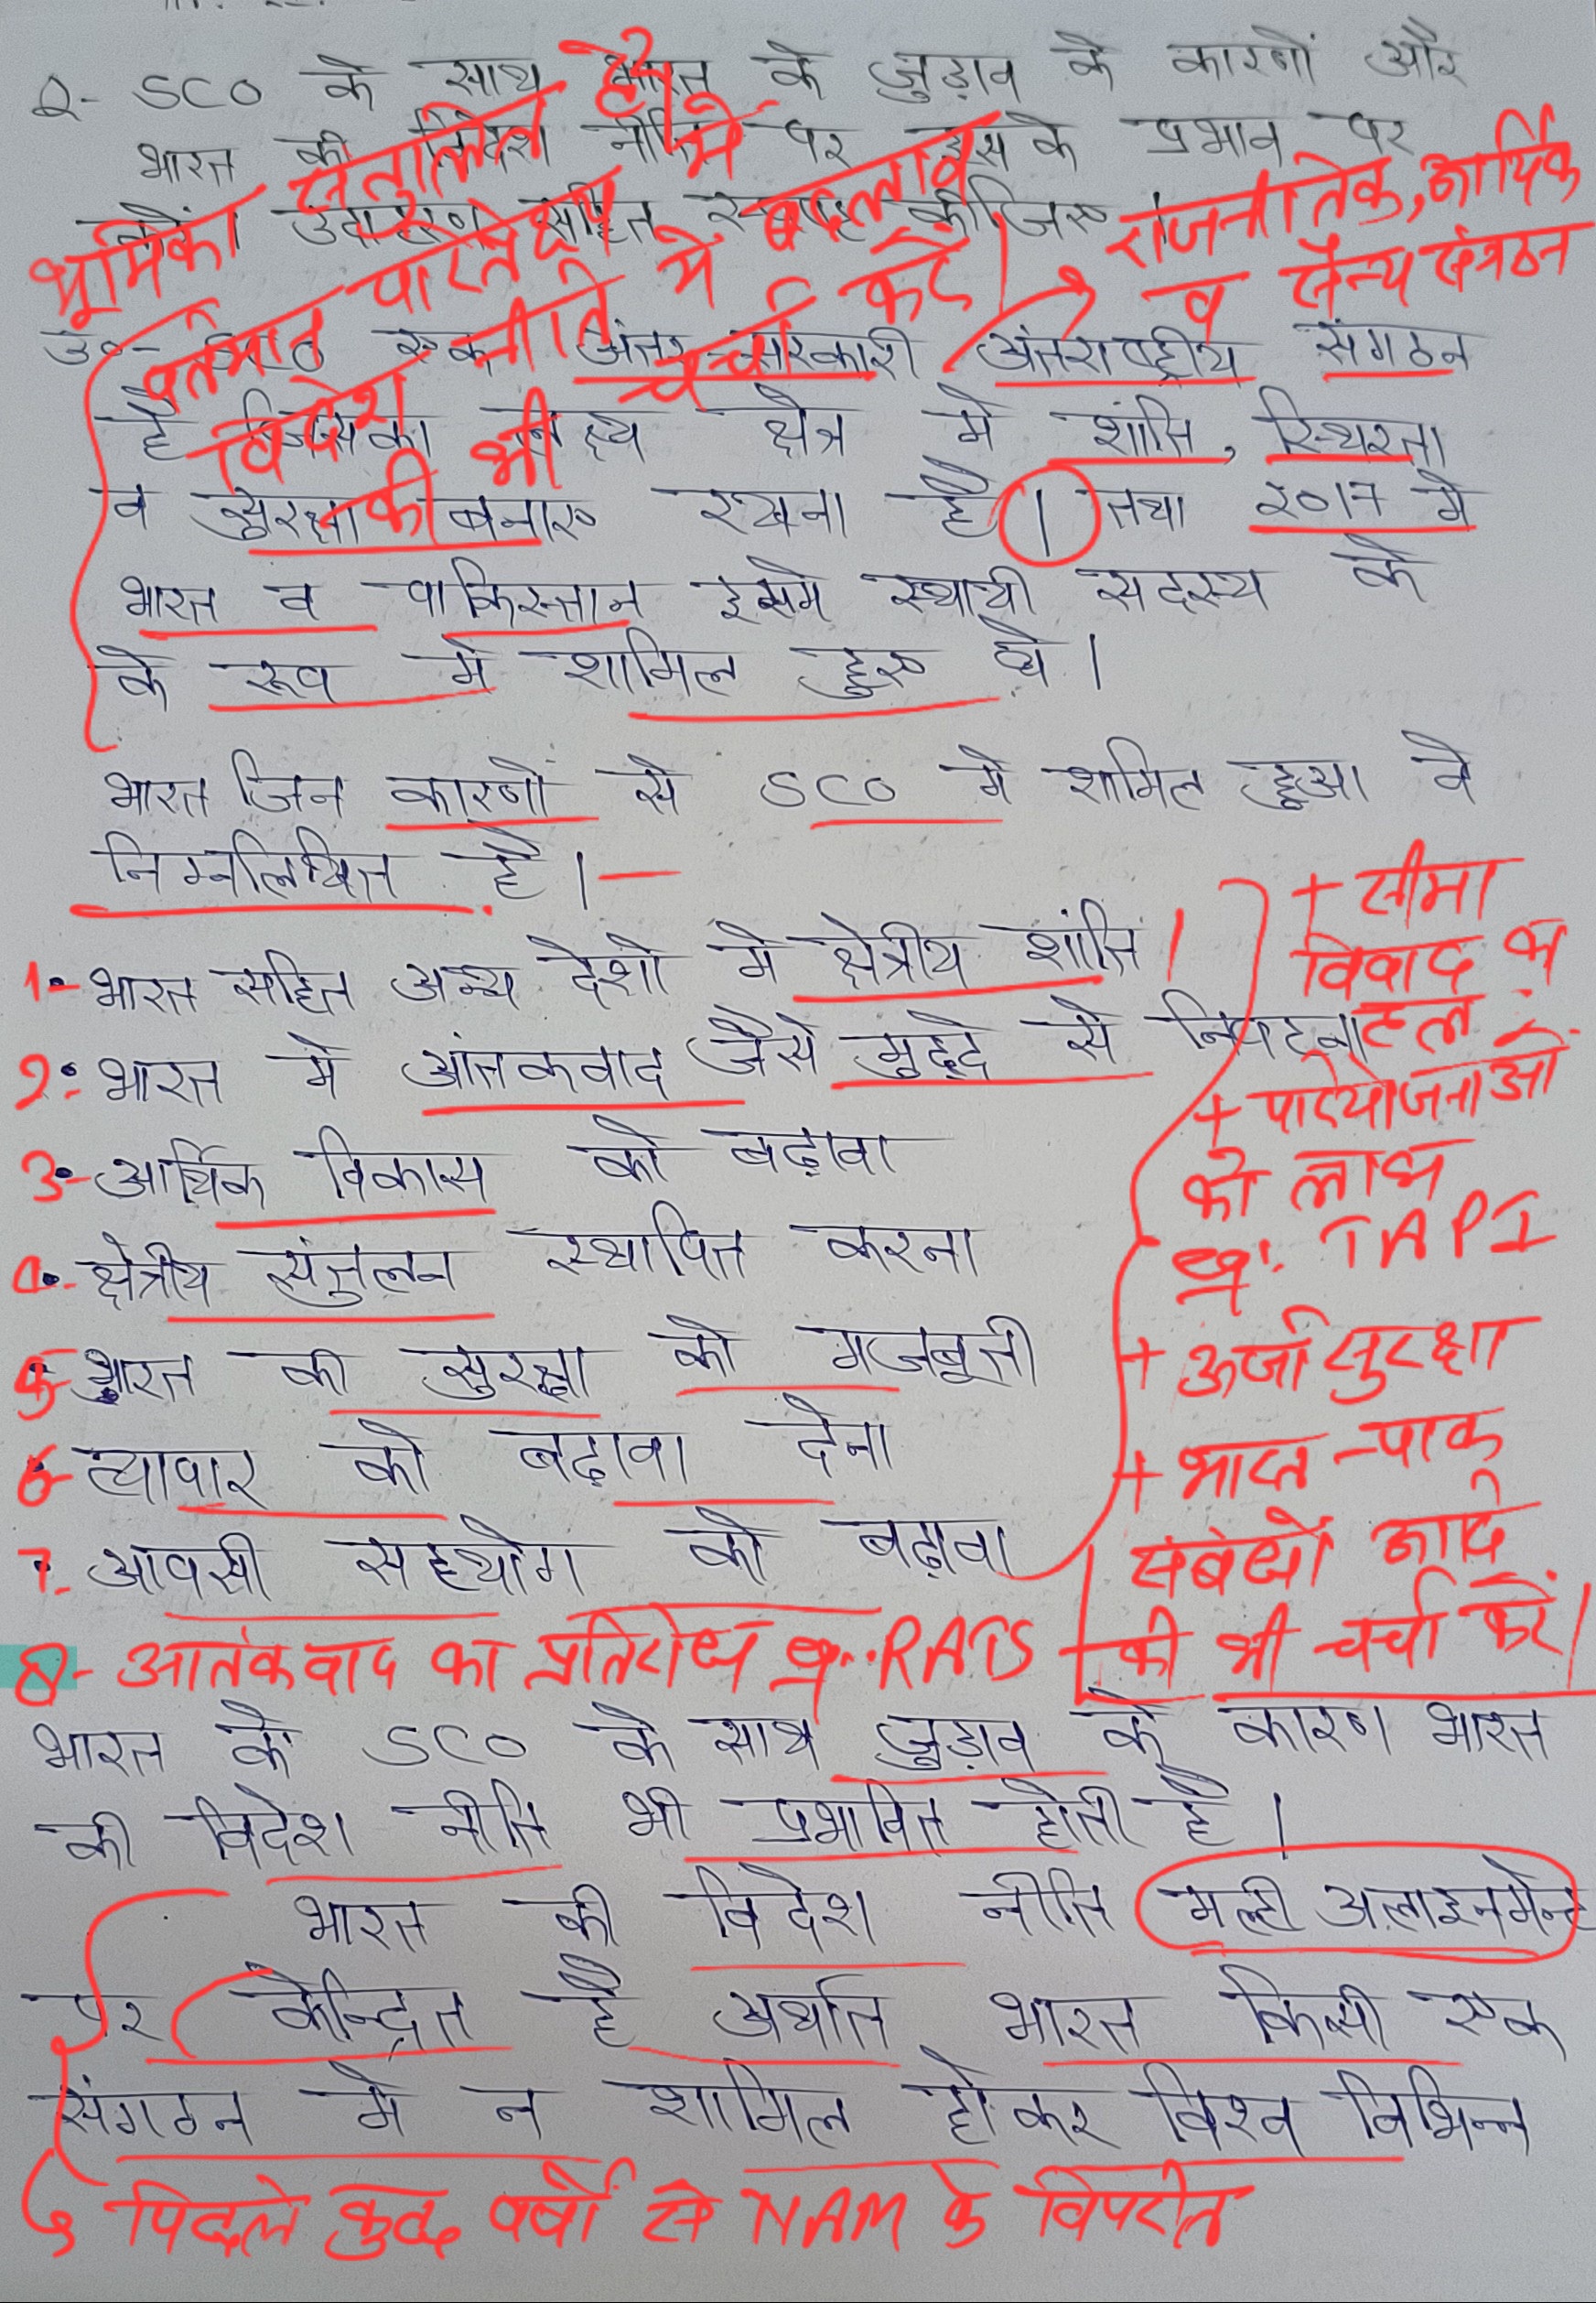 Q- SCO के साथ भारत के जुड़ाव के कारणों और
भारत की विदेश नीति पर इसके प्रभाव पर
उदाहरण सहित स्पष्ट कीजिए
भूमिका संतुलित है
वर्तमान परिदृश्य में बदलाव
विदेश नीति में चर्चा करें।
की भी
राजनीतिक, आर्थिक
व सैन्य संगठन
उ०- SCO एक अंतर-सरकारी अंतराष्ट्रीय संगठन
है जिसका लक्ष्य क्षेत्र मे शांति, स्थिरता
व सुरक्षा बनाए रखना है। तथा 2017 मे
भारत व पाकिस्तान इसमे स्थायी सदस्य के
के रूप मे शामिल हुए थे।
भारत जिन कारणो से SCO मे शामिल हुआ वे
निम्नलिखित है।-
1- भारत सहित अन्य देशो मे क्षेत्रीय शांति।
2- भारत मे आंतकवाद जैसे मुद्दे से निपटना
3- आर्थिक विकास को बढ़ावा
4- क्षेत्रीय संतुलन स्थापित करना
5- भारत की सुरक्षा को मजबूती
6- व्यापार को बढ़ावा देना
7- आपसी सहयोग को बढ़ावा
8- आतंकवाद का प्रतिरोध RATS
+ सीमा
विवाद का
हल
+ परियोजनाओं
को लाभ
TAPI
+ ऊर्जा सुरक्षा
+ भारत-पाक
संबंधों आदि
की भी चर्चा करें।
भारत के SCO के साथ जुड़ाव के कारण भारत
की विदेश नीति भी प्रभावित होती है।
भारत की विदेश नीति मल्टी अलाइनमेन्ट
पर केन्द्रित है अर्थात भारत किसी एक
संगठन मे न शामिल होकर विश्व विभिन्न
पिछले कुछ वर्षों से NAM के विपरीत